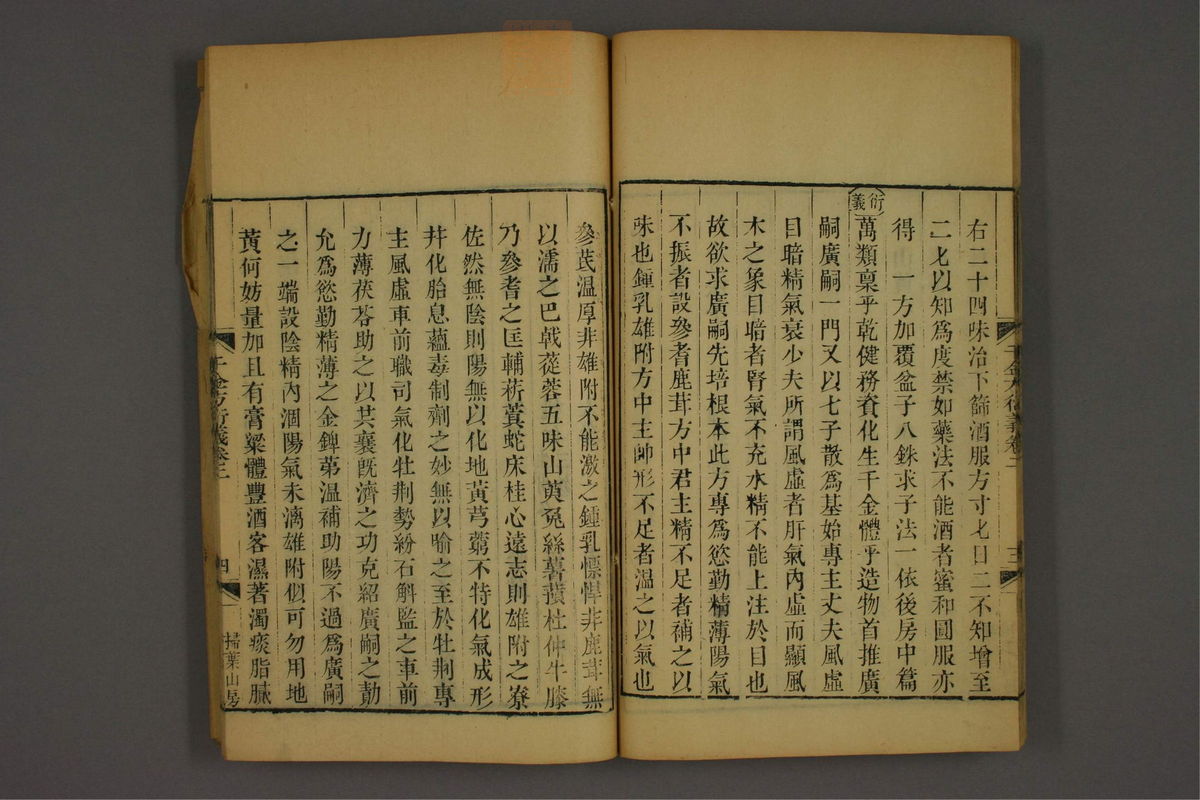 右二十四味治下篩酒服方寸匕日二不知增至
二匕以知爲度禁如藥法不能酒者蜜和圓服亦
得 一方加覆盆子八銖求子法一依後房中篇
衍義
萬類稟乎乾健務資化生千金體乎造物首推廣
嗣廣嗣一門又以七子散爲基始專主丈夫風虛
目暗精氣衰少夫所謂風虛者肝氣內虛而顯風
木之象目暗者腎氣不充水精不能上注於目也
故欲求廣嗣先培根本此方專爲慾勤精薄陽氣
不振者設參耆鹿茸方中君主精不足者補之以
味也鍾乳雄附方中主帥形不足者溫之以氣也
千金方衍義卷二
三
參芪溫厚非雄附不能激之鍾乳慓悍非鹿茸無
以濡之巴戟蓯蓉五味山萸菟絲薯蕷杜仲牛膝
乃參耆之匡輔菥蓂蛇床桂心遠志則雄附之寮
佐然無陰則陽無以化地黃芎藭不特化氣成形
幷化胎息蘊毒制劑之妙無以喻之至於牡荊專
主風虛車前職司氣化牡荊勢紛石斛監之車前
力薄茯苓助之以共襄旣濟之功克紹廣嗣之勣
允爲慾勤精薄之金錍苐溫補助陽不過爲廣嗣
之一端設陰精內涸陽氣未漓雄附似可勿用地
黃何妨量加且有膏粱體豐酒客濕著濁痰脂膩
千金方衍義卷二
四
掃葉山房